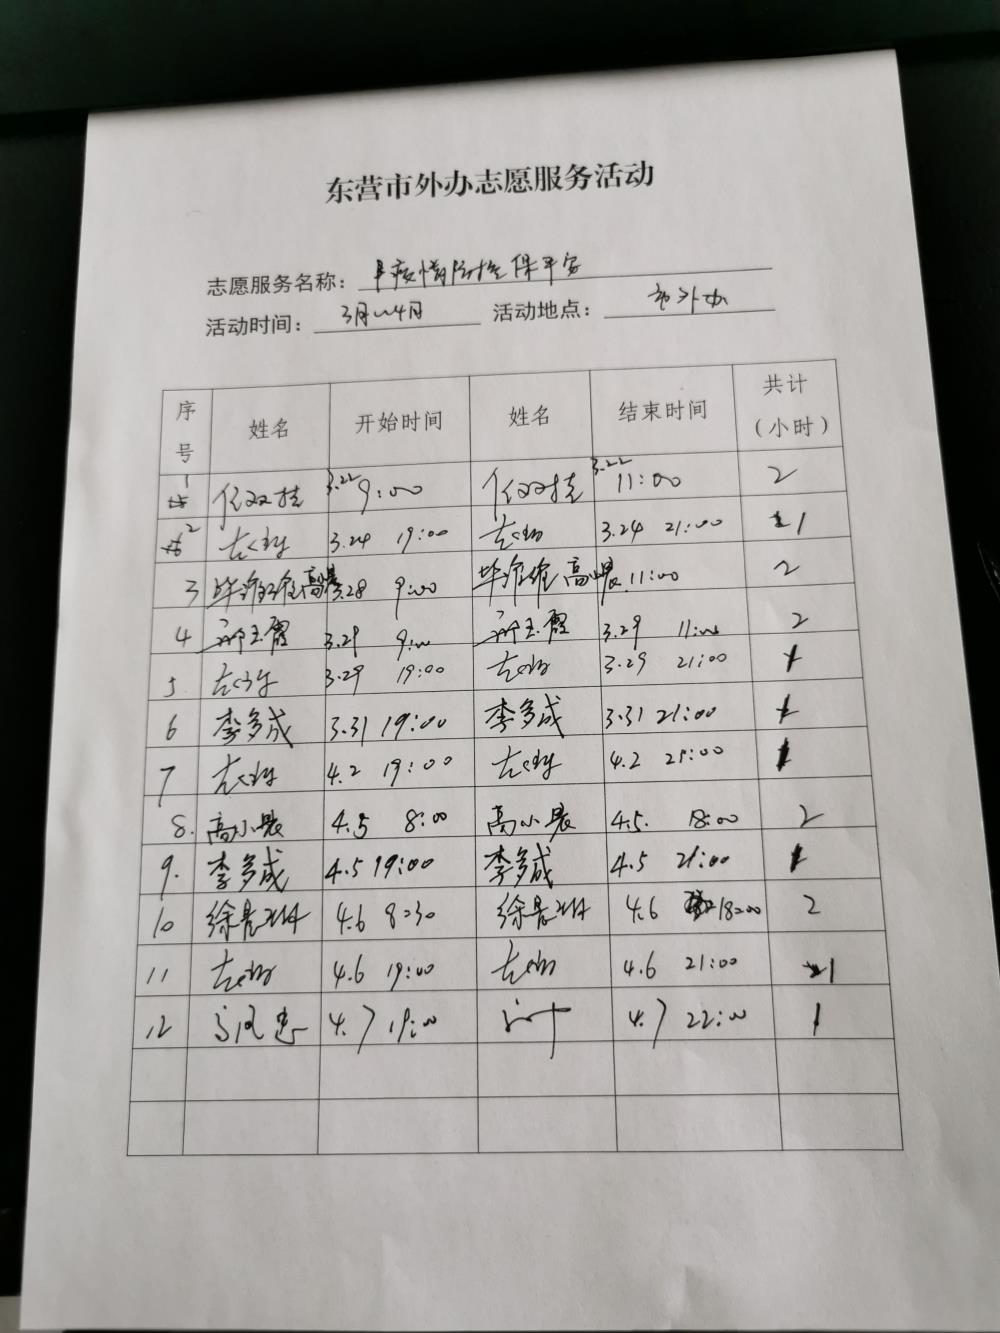 东营市外办志愿服务活动
志愿服务名称： 疫情防控保平安
活动时间： 3月~4月 活动地点： 市外办
序号 姓名 开始时间 姓名 结束时间 共计（小时）
1 任双桂 3.22 9:00 任双桂 3.22 11:00 2
2 3.24 19:00 3.24 21:00 1
3 毕维维 高晨 3.28 9:00 毕维维 高晨 11:00 2
4 玉霞 3.29 9:00 玉霞 3.29 11:00 2
5. 3.29 19:00 3.29 21:00 1
6 李多成 3.31 19:00 李多成 3.31 21:00 1
7 4.2 19:00 4.2 21:00 1
8. 高小晨 4.5 8:00 高小晨 4.5. 18:00 2
9. 李多成 4.5 19:00 李多成 4.5 21:00 1
10 徐 4.6 8:30 徐 4.6 18:00 2
11 4.6 19:00 4.6 21:00 1
12 4.7 19:00 4.7 22:00 1